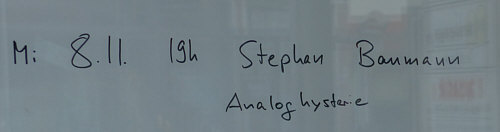 Mi 8.11. 19h Stephan Baumann
Analoghysterie